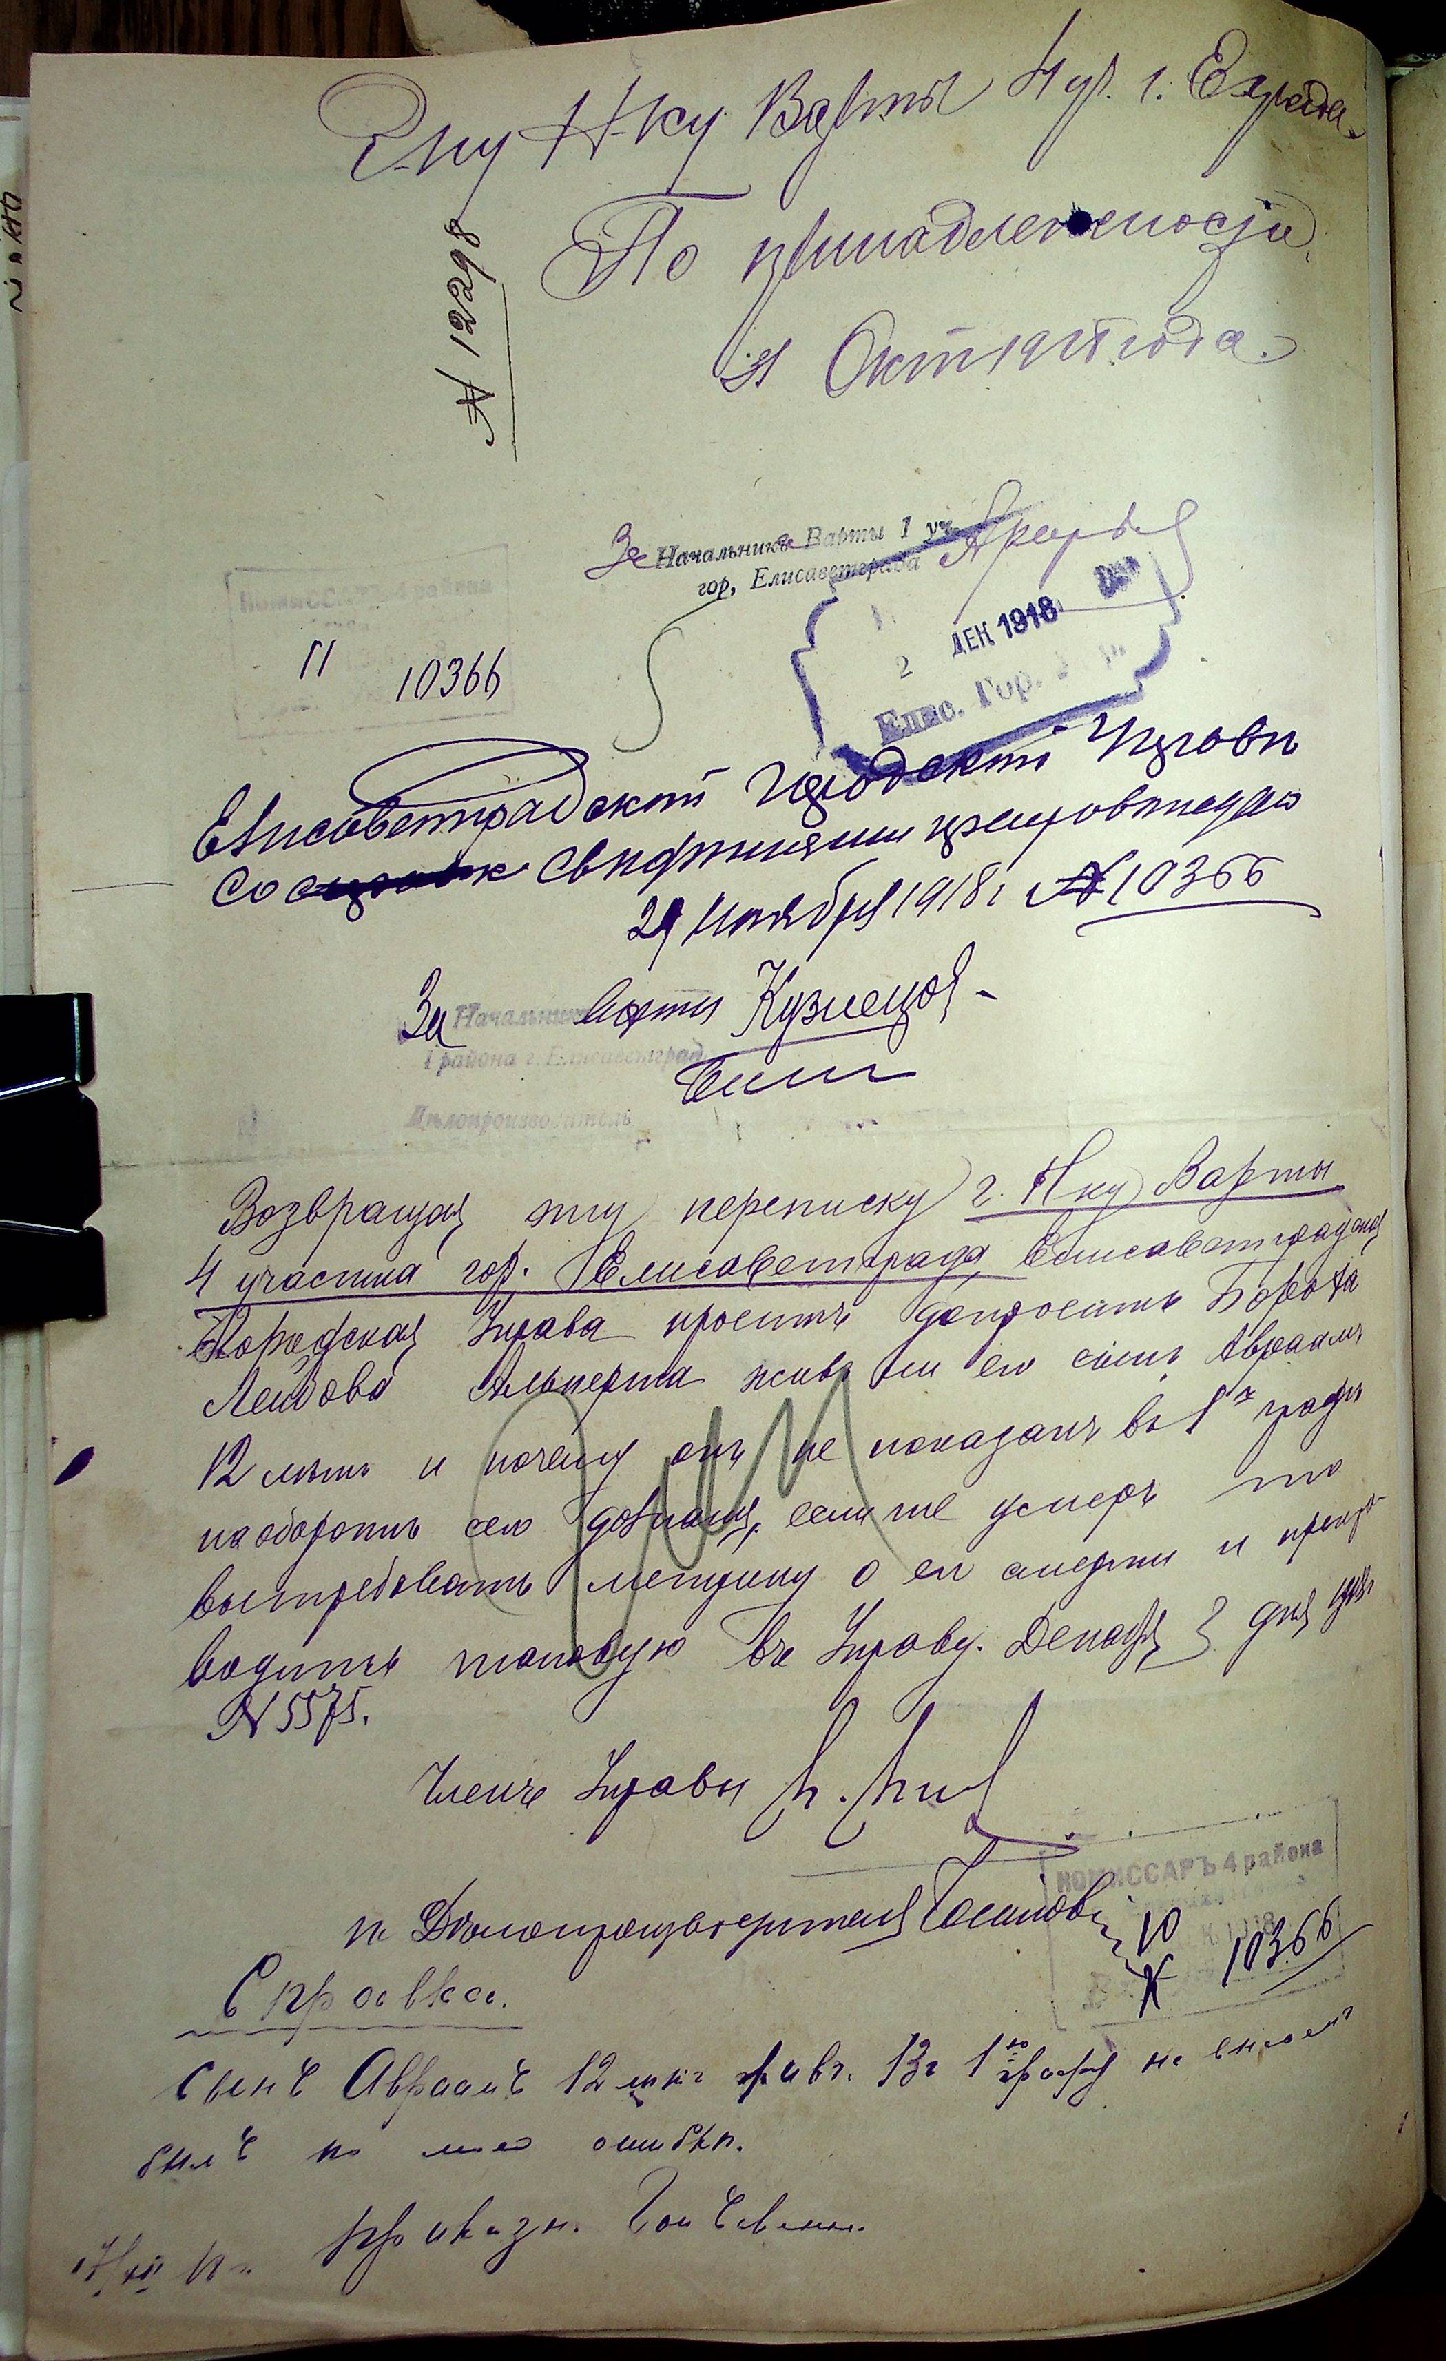 Г-ну Н-ку Варты 4 уч. г. Е-града.
По принадлежности
Окт 1918 года.
№ 12298
За Начальника Варты 1 уч.
гор. Елисаветграда
2 ДЕК 1918
Елис. Гор.
П 10366
Елисаветградской Городской Управѣ
со свѣдѣніями
29 Ноября 1918 г. № 10366
За Начальника Варты Кузнецов
1 района г. Елисаветград
Дѣлопроизводитель
Возвращая эту переписку г. Нку Варты
4 участка гор. Елисаветграда Елисаветградская
Городская Управа проситъ допросить Бороха
Лейбова Альперта живъ ли его сынъ Авраамъ
12 лѣтъ и почему онъ не показанъ въ 1й графѣ
на оборотѣ сего дознанія, если же умеръ то
вытребовать метрику о его смерти и препро-
водить таковую въ Управу. Декабря 3 дня 1918 г.
№ 5575.
Членъ Управы
п. Дѣлопроизводителя
КОМИССАРЪ 4 района
10366
Справка.
Сынъ Авраамъ 12 лѣтъ живъ. Въ 1ю графу не внесенъ
былъ по моей ошибкѣ.